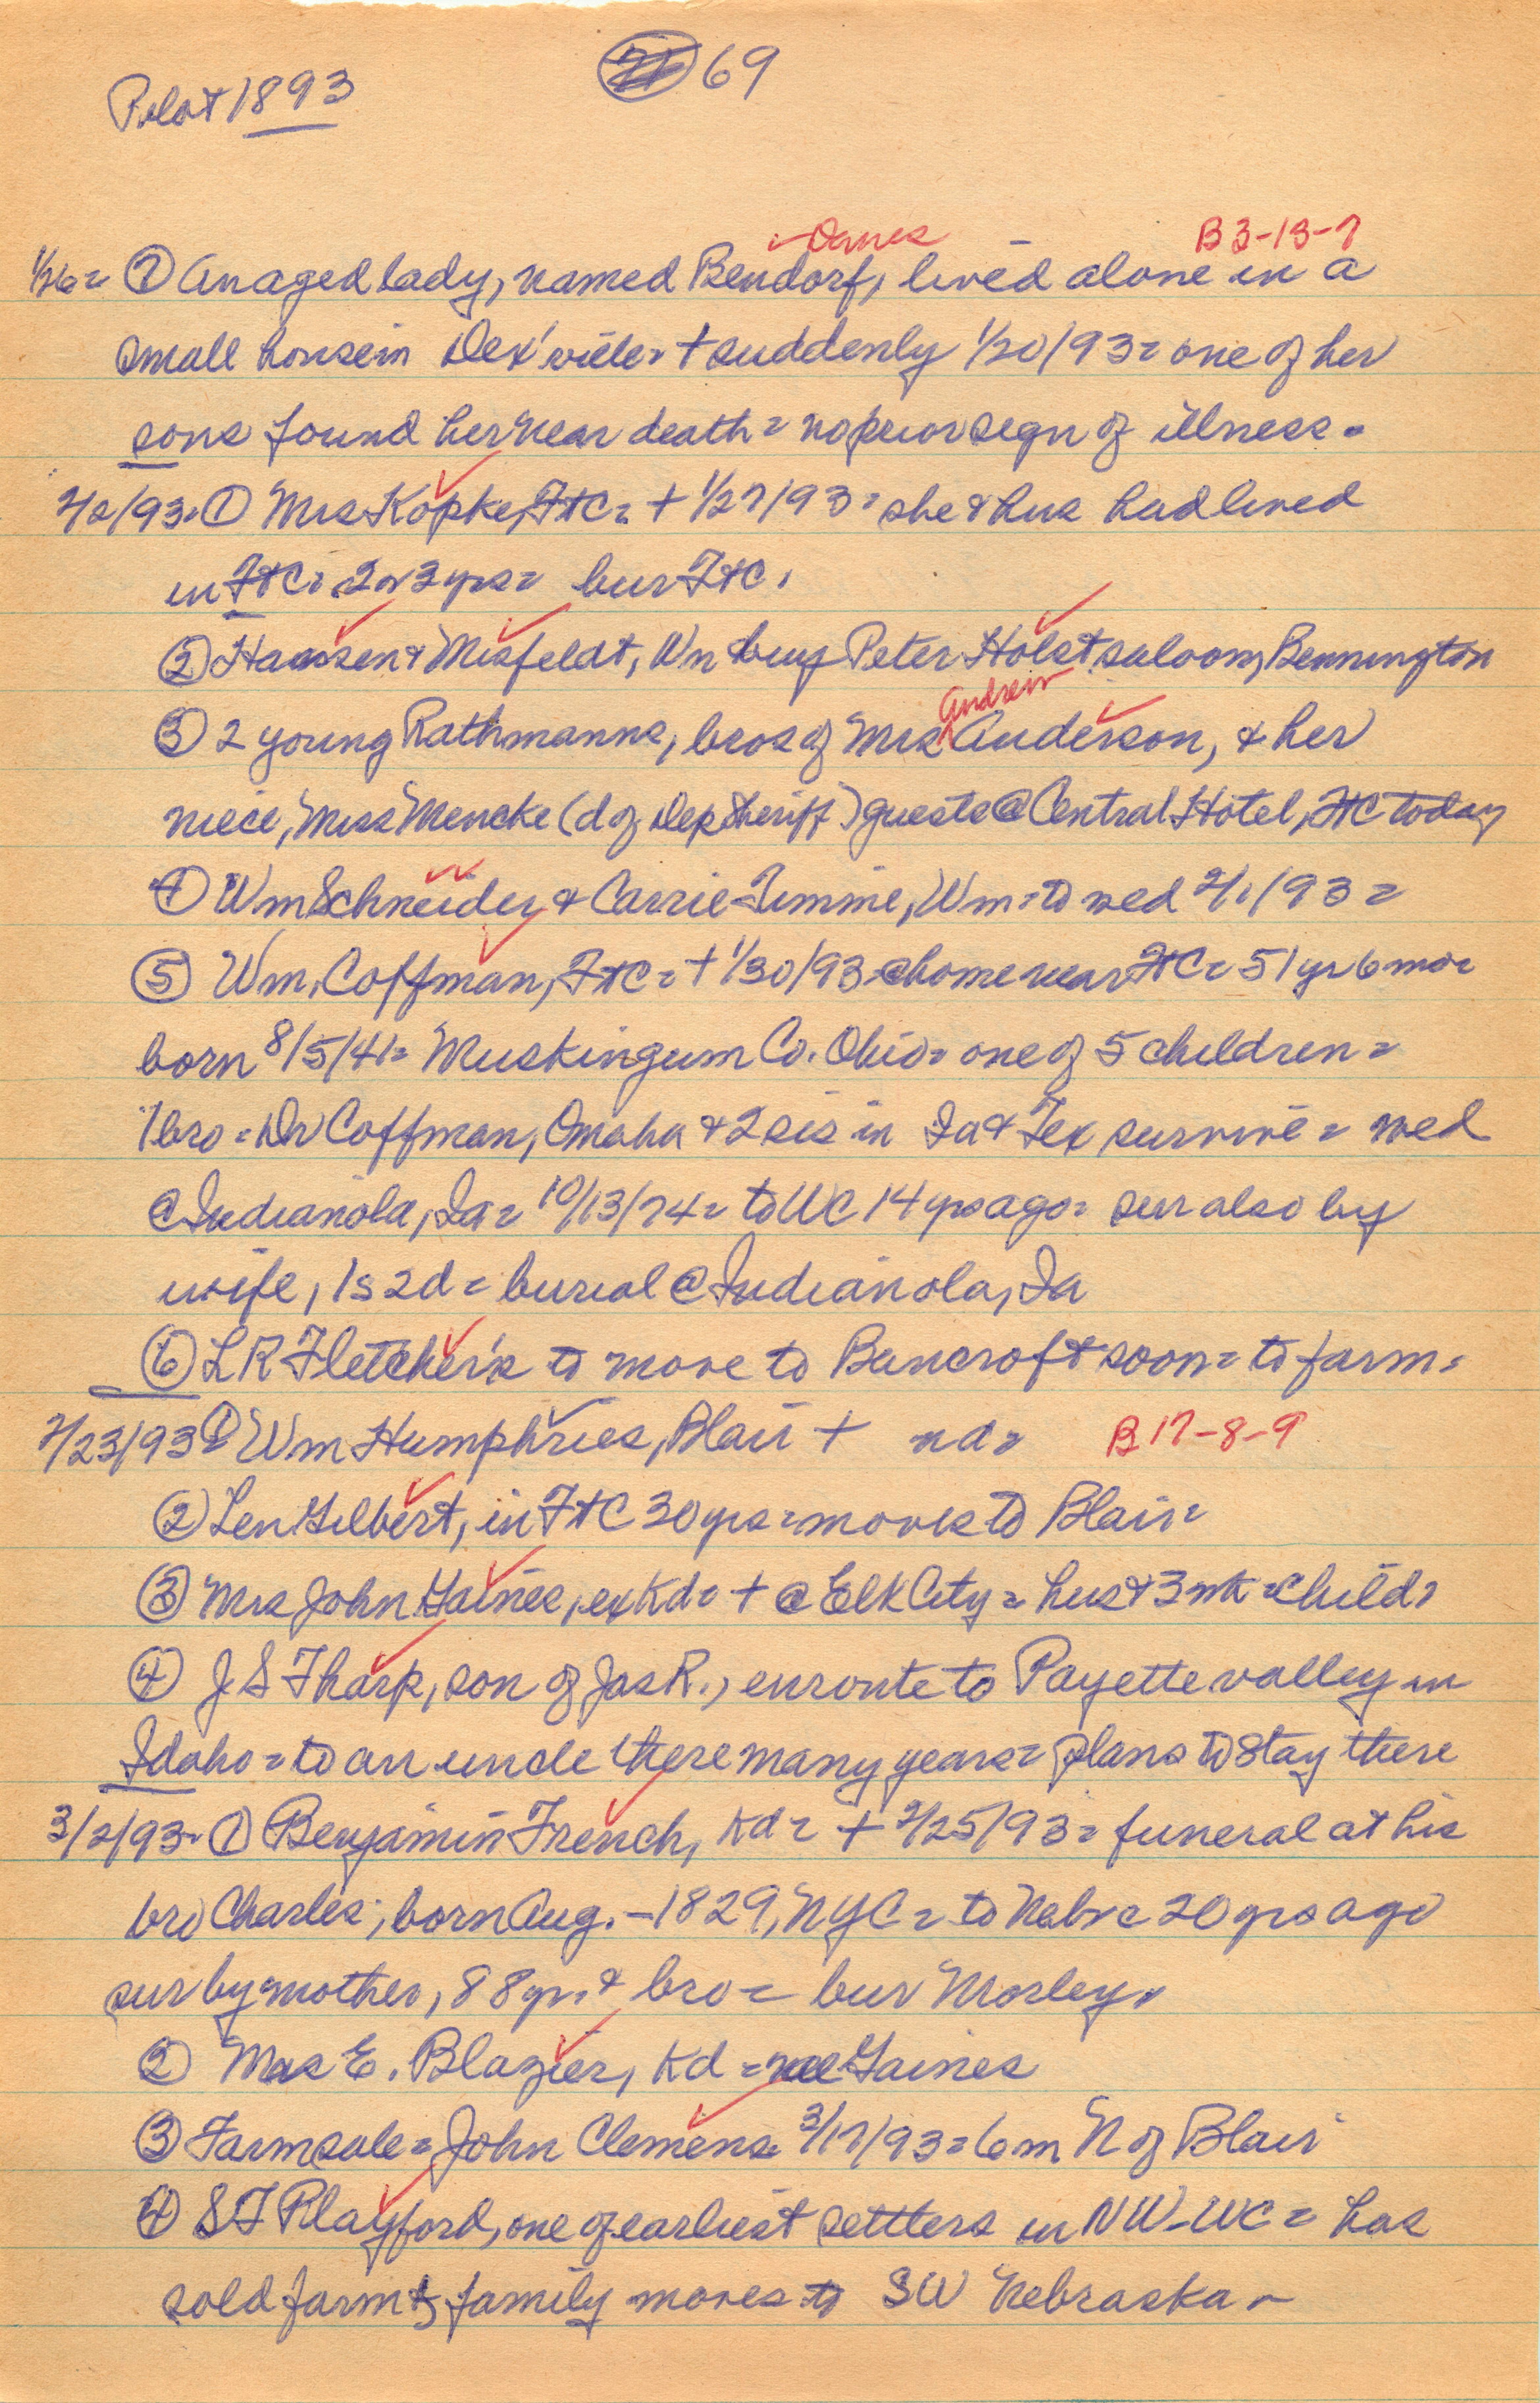 69
Pilot 1893
B 3-13-7
1/26= ⑦ An aged lady, named Bendorf, lived alone in a
small house in Dex'ville= + suddenly 1/20/93= one of her
sons found her near death= no prior sign of illness.
2/2/93= ① Mrs Kopke, FtC= + 1/27/93= she & hus had lived
in FtC= 2 or 3 yrs= bur FtC.
② Hansen & Misfeldt, Wn buy Peter Holst saloon, Bennington
Andrew
③ 2 young Rathmanns, bros of Mrs Anderson, & her
niece, Miss Mencke (d of Dep Sheriff) guests @ Central Hotel, FtC today
④ Wm Schneider & Carrie Timme, Wm= to wed 2/1/93=
⑤ Wm. Coffman, FtC= + 1/30/93 @ home near FtC= 51 yr 6 mo=
born 8/5/41= Muskingum Co. Ohio= one of 5 children=
1 bro= Dr Coffman, Omaha & 2 sis in Ia & Tex survive= wed
@ Indianola, Ia= 10/13/74= to WC 14 yrs ago= sur also by
wife, 1s 2d= burial @ Indianola, Ia
⑥ L R Fletcher's to move to Bancroft soon= to farm=
2/23/93= ① Wm Humphries, Blair + nd= B 17-8-9
② Len Gilbert, in FtC 30 yrs= moves to Blair=
③ Mrs John Gaines, ex Kd= + @ Elk City= hus & 3 wk= child=
④ J S Tharp, son of Jas R., enroute to Payette valley in
Idaho= to an uncle there many years= plans to stay there
3/2/93= ① Benjamin French, Kd= + 2/25/93= funeral at his
bro Charles; born Aug. -1829, NYC= to Nebr= 20 yrs ago
sur by mother, 88 yr. & bro= bur Morley.
② Mrs E. Blazier, Kd= nee Gaines
③ Farm sale= John Clemens= 3/17/93= 6 m N of Blair
④ S F Playford, one of earliest settlers in NW-WC= has
sold farm & family moves to SW Nebraska-